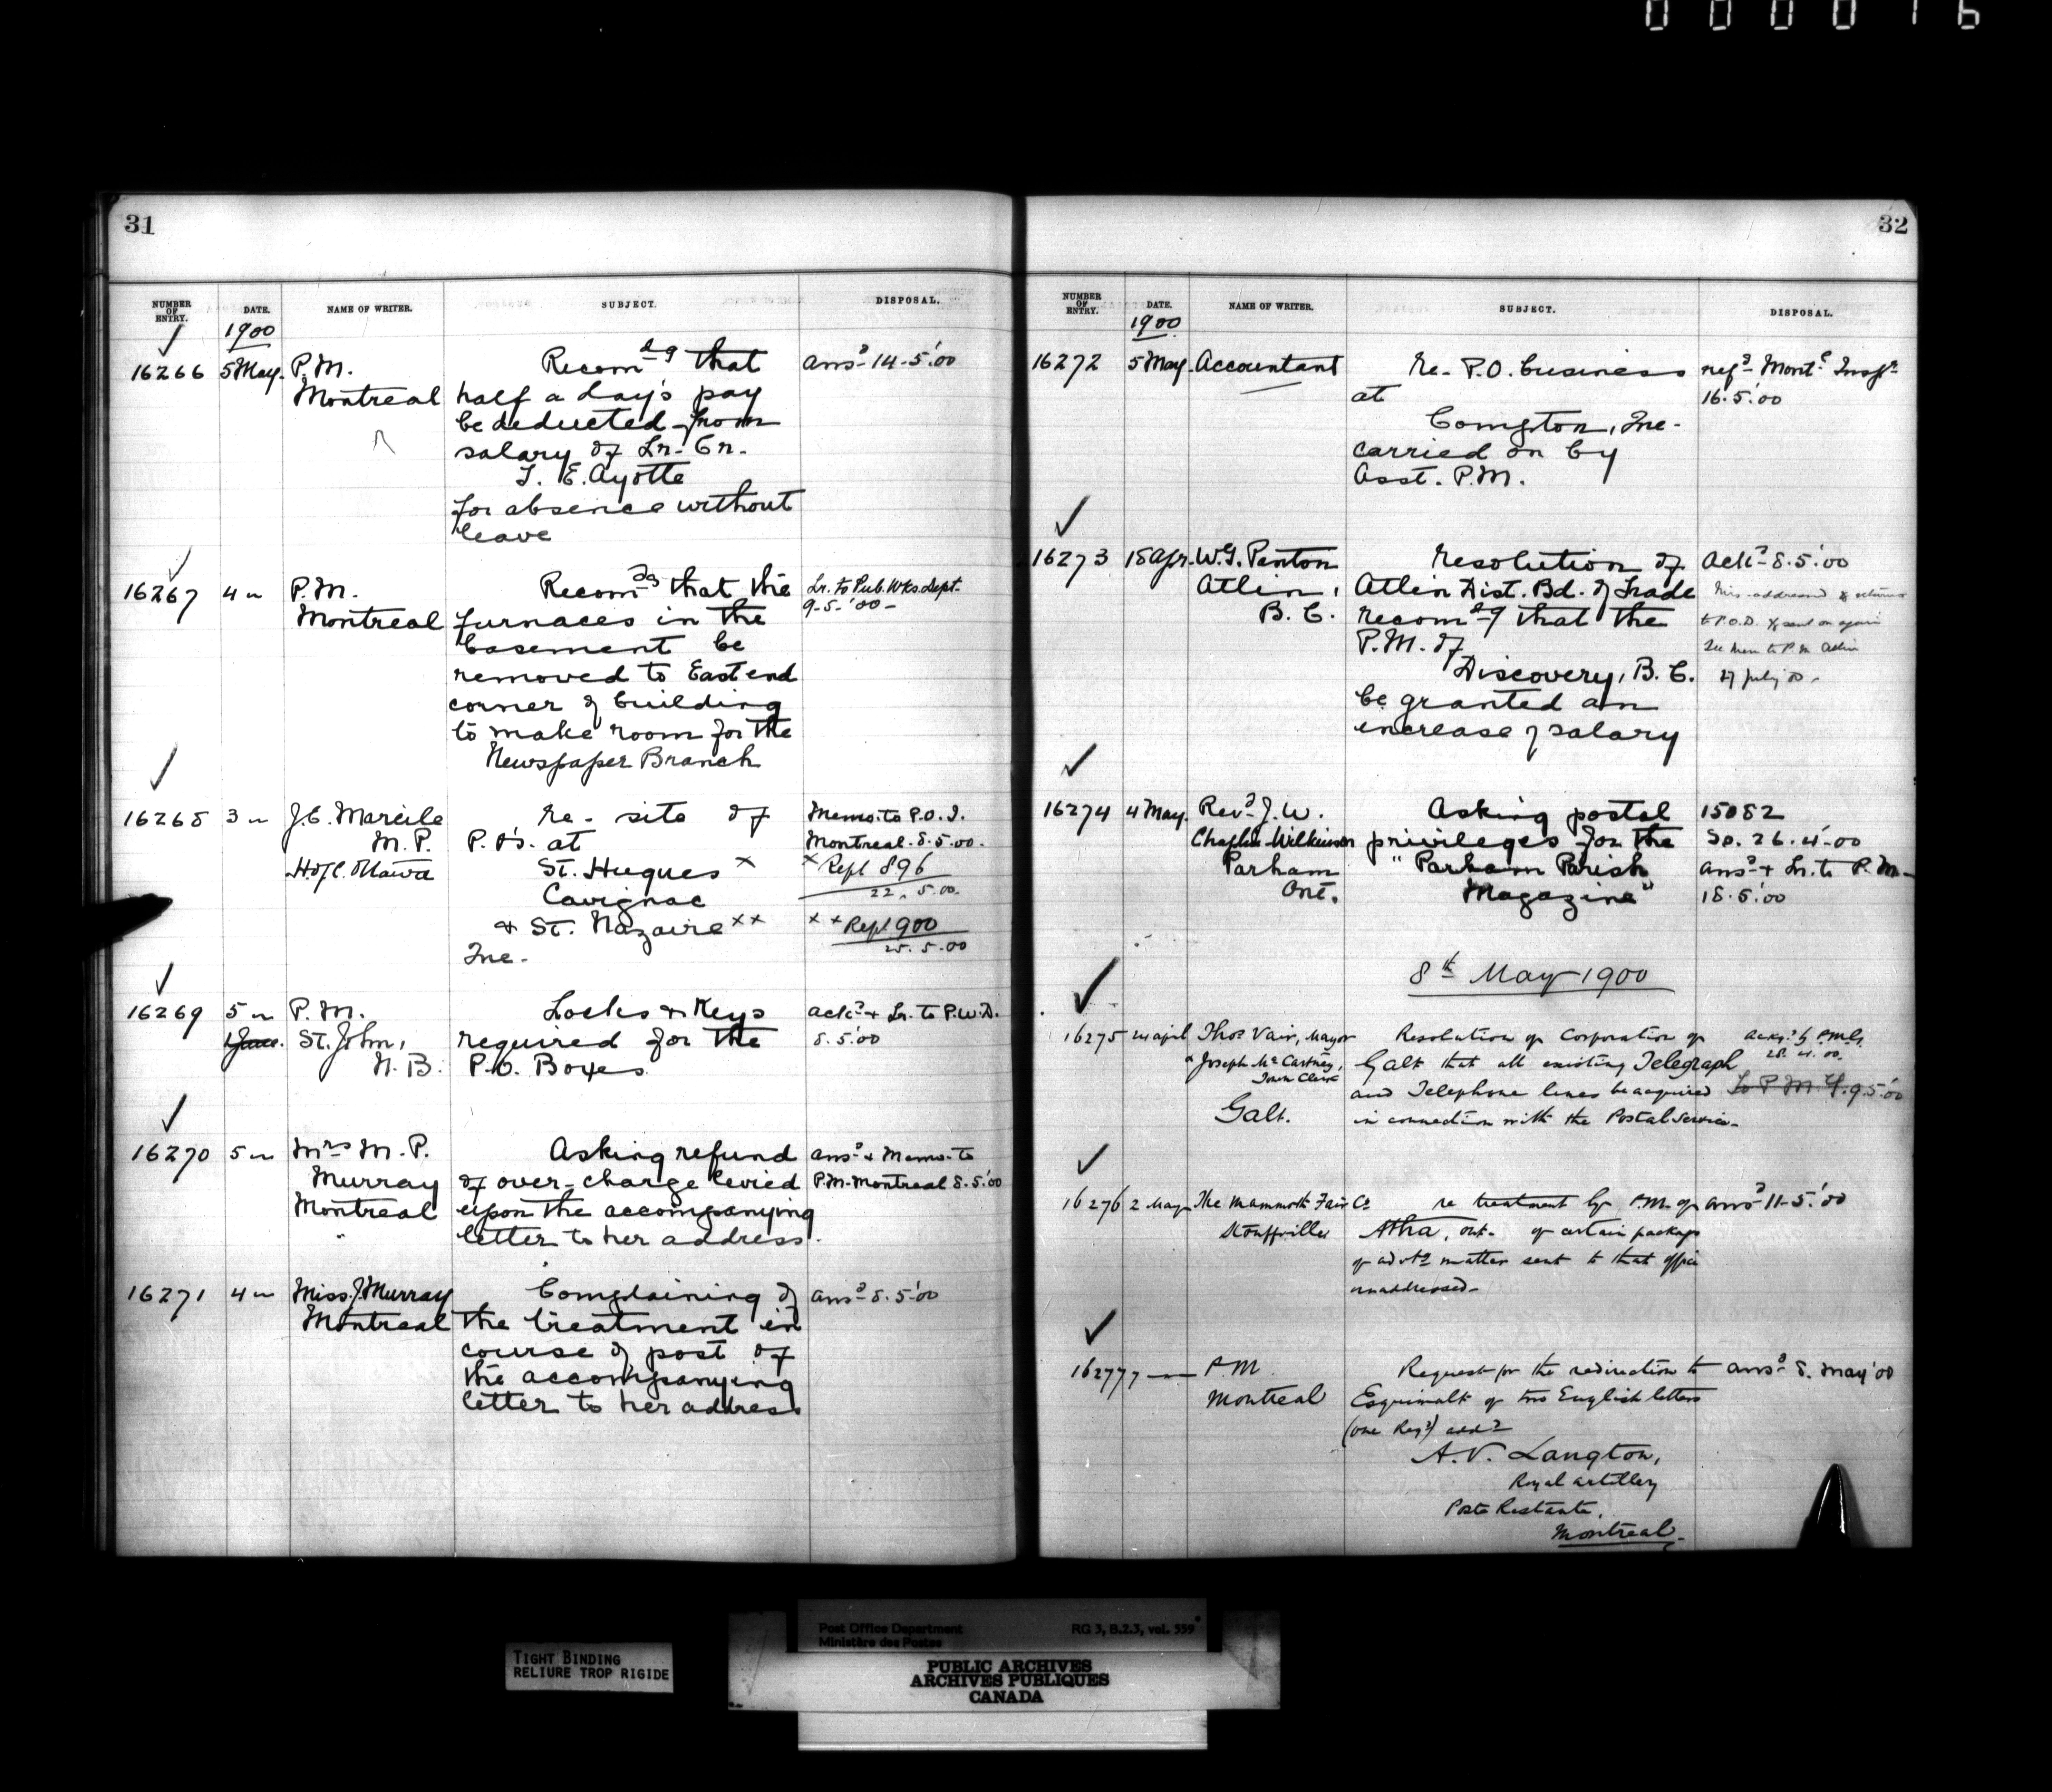 000016
31
NUMBER OF ENTRY. DATE. NAME OF WRITER. SUBJECT. DISPOSAL.
1900
16266 5 May. P.M. Recom.dg that ansd 14-5-'00
Montreal half a day's pay
be deducted from
salary of Lr. Cr.
T. E. Ayotte
for absence without
leave
16267 4 " P.M. Recomdg that the Lr. to Pub. Wks. Dept.
Montreal furnaces in the 9-5-'00-
basement be
removed to East end
corner of building
to make room for the
Newspaper Branch
16268 3 " J.E. Marcile re- site of Memo. to P.O.I.
M.P. P.O's. at Montreal. 8.5.00.
H. of C. Ottawa St. Hugues x x Rept 896
Cavignac 22. 5.00.
& St. Nazaire xx xx Rept 900
Que. 25. 5.00
16269 5 " P.M. Locks & Keys ackd & Lr. to P.W.D.
St. John, required for the 8.5.'00
N.B. P.O. Boxes
16270 5 " Mrs M.P. Asking refund ansd & Memo. to
Murray of over-charge levied P.M. Montreal 8.5.'00
Montreal upon the accompanying
letter to her address.
16271 4 " Miss J. Murray Complaining of ansd 8.5.'00
Montreal the treatment in
course of post of
the accompanying
letter to her address
32
NUMBER OF ENTRY. DATE. NAME OF WRITER. SUBJECT. DISPOSAL.
1900
16272 5 May. Accountant re- P.O. business refd Montl Inspr
at 16.5.'00
Compton, Que.
carried on by
Asst. P.M.
16273 18 Apr. W.G. Paxton Resolution of Ackd 8.5.'00
Atlin, Atlin Dist. Bd. of Trade Mis-addressed & returned
B.C. recomdg that the to P.O.D. & sent on again
P.M. of See Mem to P.M. Atlin
Discovery, B.C. 27 July 00.
be granted an
increase of salary
16274 4 May. Revd J.W. Asking postal 15082
Chaplin-Wilkinson privileges for the Sp. 26.4-'00
Parham "Parham Parish ansd & Lr. to P.M.
Ont. Magazine" 18.5.'00
8th May 1900
16275 April Thos Vair, Mayor Resolution of Corporation of ackd by P.M.G.
& Joseph McCartney, Galt that all existing Telegraph 28.4.00.
Town Clerk and Telephone lines be acquired To P.M.G. 9.5.'00
Galt. in connection with the Postal Service.
16276 2 May The Mammoth Fair Co. re treatment by P.M. of ansd 11-5.'00
Stouffville Altha, Ont. of certain package
of advtg matter sent to that office
unaddressed.
16277 7 " P.M. Request for the redirection to ansd 8. May '00
Montreal Esquimalt of two English letters
(one Regd) addd
A.V. Langton,
Royal Artillery
Poste Restante,
Montreal.
Post Office Department RG 3, B.2.3, vol. 559
Ministère des Postes
TIGHT BINDING
RELIURE TROP RIGIDE
PUBLIC ARCHIVES
ARCHIVES PUBLIQUES
CANADA